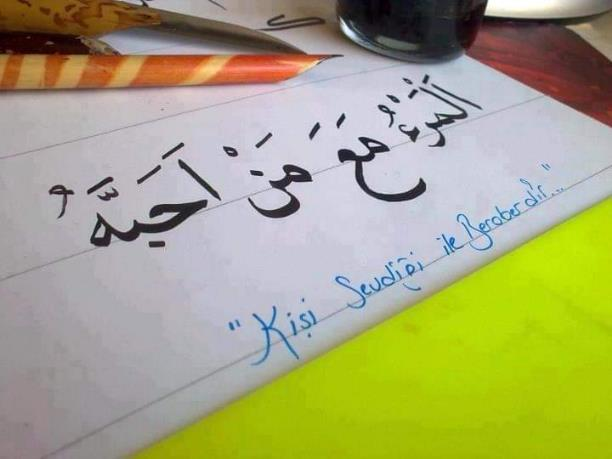 اَلْمَرْءُ مَعَ مَنْ اَحَبَّهُ
"Kişi Sevdiği ile Beraberdir..."